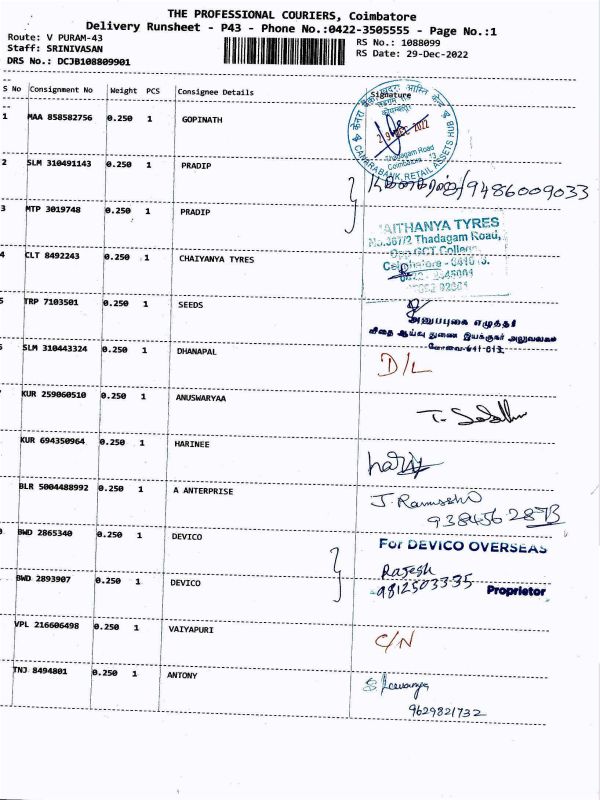 THE PROFESSIONAL COURIERS, Coimbatore
Delivery Runsheet - P43 - Phone No.:0422-3505555 - Page No.:1
Route: V PURAM-43
RS No.: 1088099
Staff: SRINIVASAN
RS Date: 29-Dec-2022
DRS No.: DCJB108809901
S No Consignment No Weight PCS Consignee Details Signature
1 MAA 858582756 0.250 1 GOPINATH
CANARA BANK, RETAIL ASSETS HUB
29 DEC 2022
Thadagam Road
2 SLM 310491143 0.250 1 PRADIP
9486009033
3 MTP 3019748 0.250 1 PRADIP
AITHANYA TYRES
No.387/2 Thadagam Road,
Opp GCT College,
4 CLT 8492243 0.250 1 CHAIYANYA TYRES
5 TRP 7103501 0.250 1 SEEDS
அனுப்புகை எழுத்தர்
விதை ஆய்வு துணை இயக்குநர் அலுவலகம்
கோவை-641 013.
SLM 310443324 0.250 1 DHANAPAL D/L
KUR 259060510 0.250 1 ANUSWARYAA
KUR 694350964 0.250 1 HARINEE
BLR 5004488992 0.250 1 A ANTERPRISE
9384562873
BWD 2865340 0.250 1 DEVICO
For DEVICO OVERSEAS
Rajesh
BWD 2893907 0.250 1 DEVICO
9812503335 Proprietor
VPL 216606498 0.250 1 VAIYAPURI C/N
TNJ 8494801 0.250 1 ANTONY
9629821732